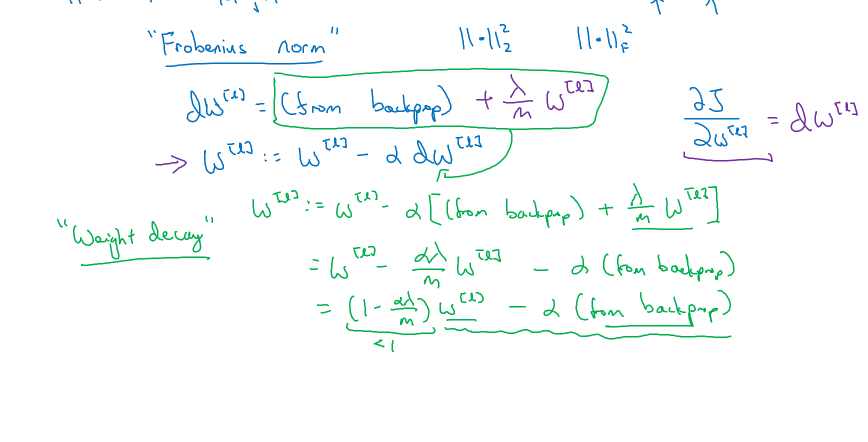 "Frobenius norm" ||·||₂² ||·||_F²
dW^[l] = (from backprop) + λ/m W^[l]
∂J/∂W^[l] = dW^[l]
→ W^[l] := W^[l] - α dW^[l]
"Weight decay"
W^[l] := W^[l] - α [(from backprop) + λ/m W^[l]]
= W^[l] - αλ/m W^[l] - α (from backprop)
= (1 - αλ/m) W^[l] - α (from backprop)
<1